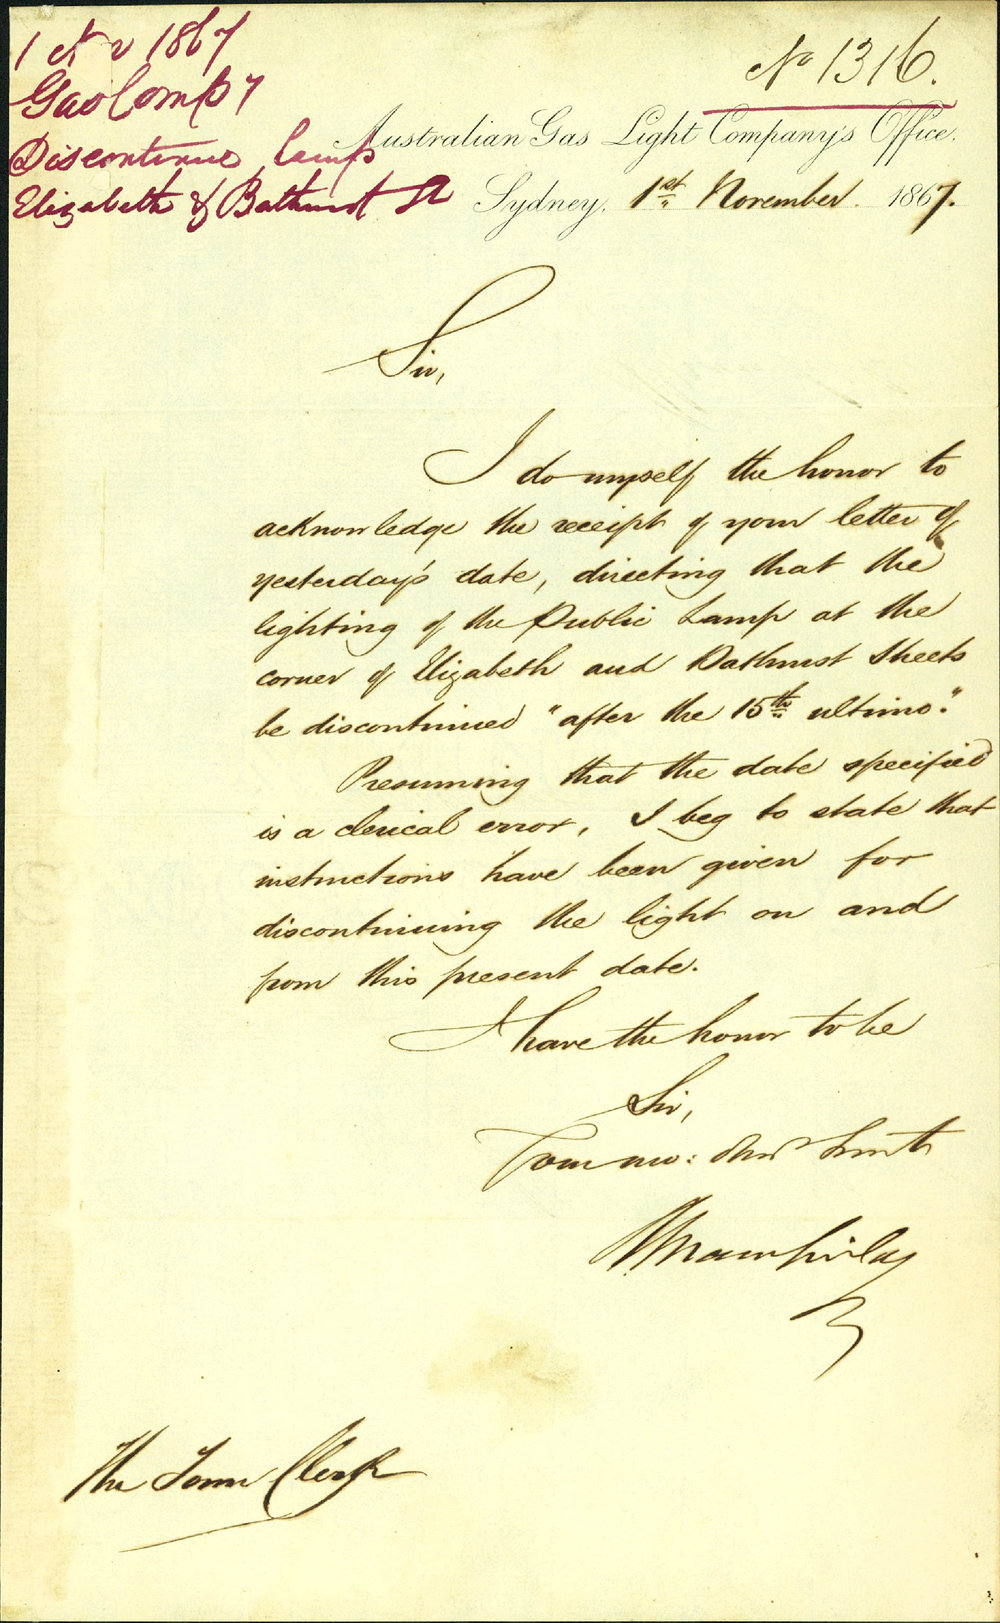 1 Nov 1867
Gas Compy
Discontinue lamp
Elizabeth & Bathurst St
No 1316.
Australian Gas Light Company's Office.
Sydney, 1st November. 1867.
Sir,
I do myself the honor to
acknowledge the receipt of your letter of
yesterday's date, directing that the
lighting of the Public Lamp at the
corner of Elizabeth and Bathurst Streets
be discontinued "after the 15th ultimo."
Presuming that the date specified
is a clerical error, I beg to state that
instructions have been given for
discontinuing the light on and
from this present date.
I have the honor to be
Sir,
Your mo: Obdt Servt
The Town Clerk